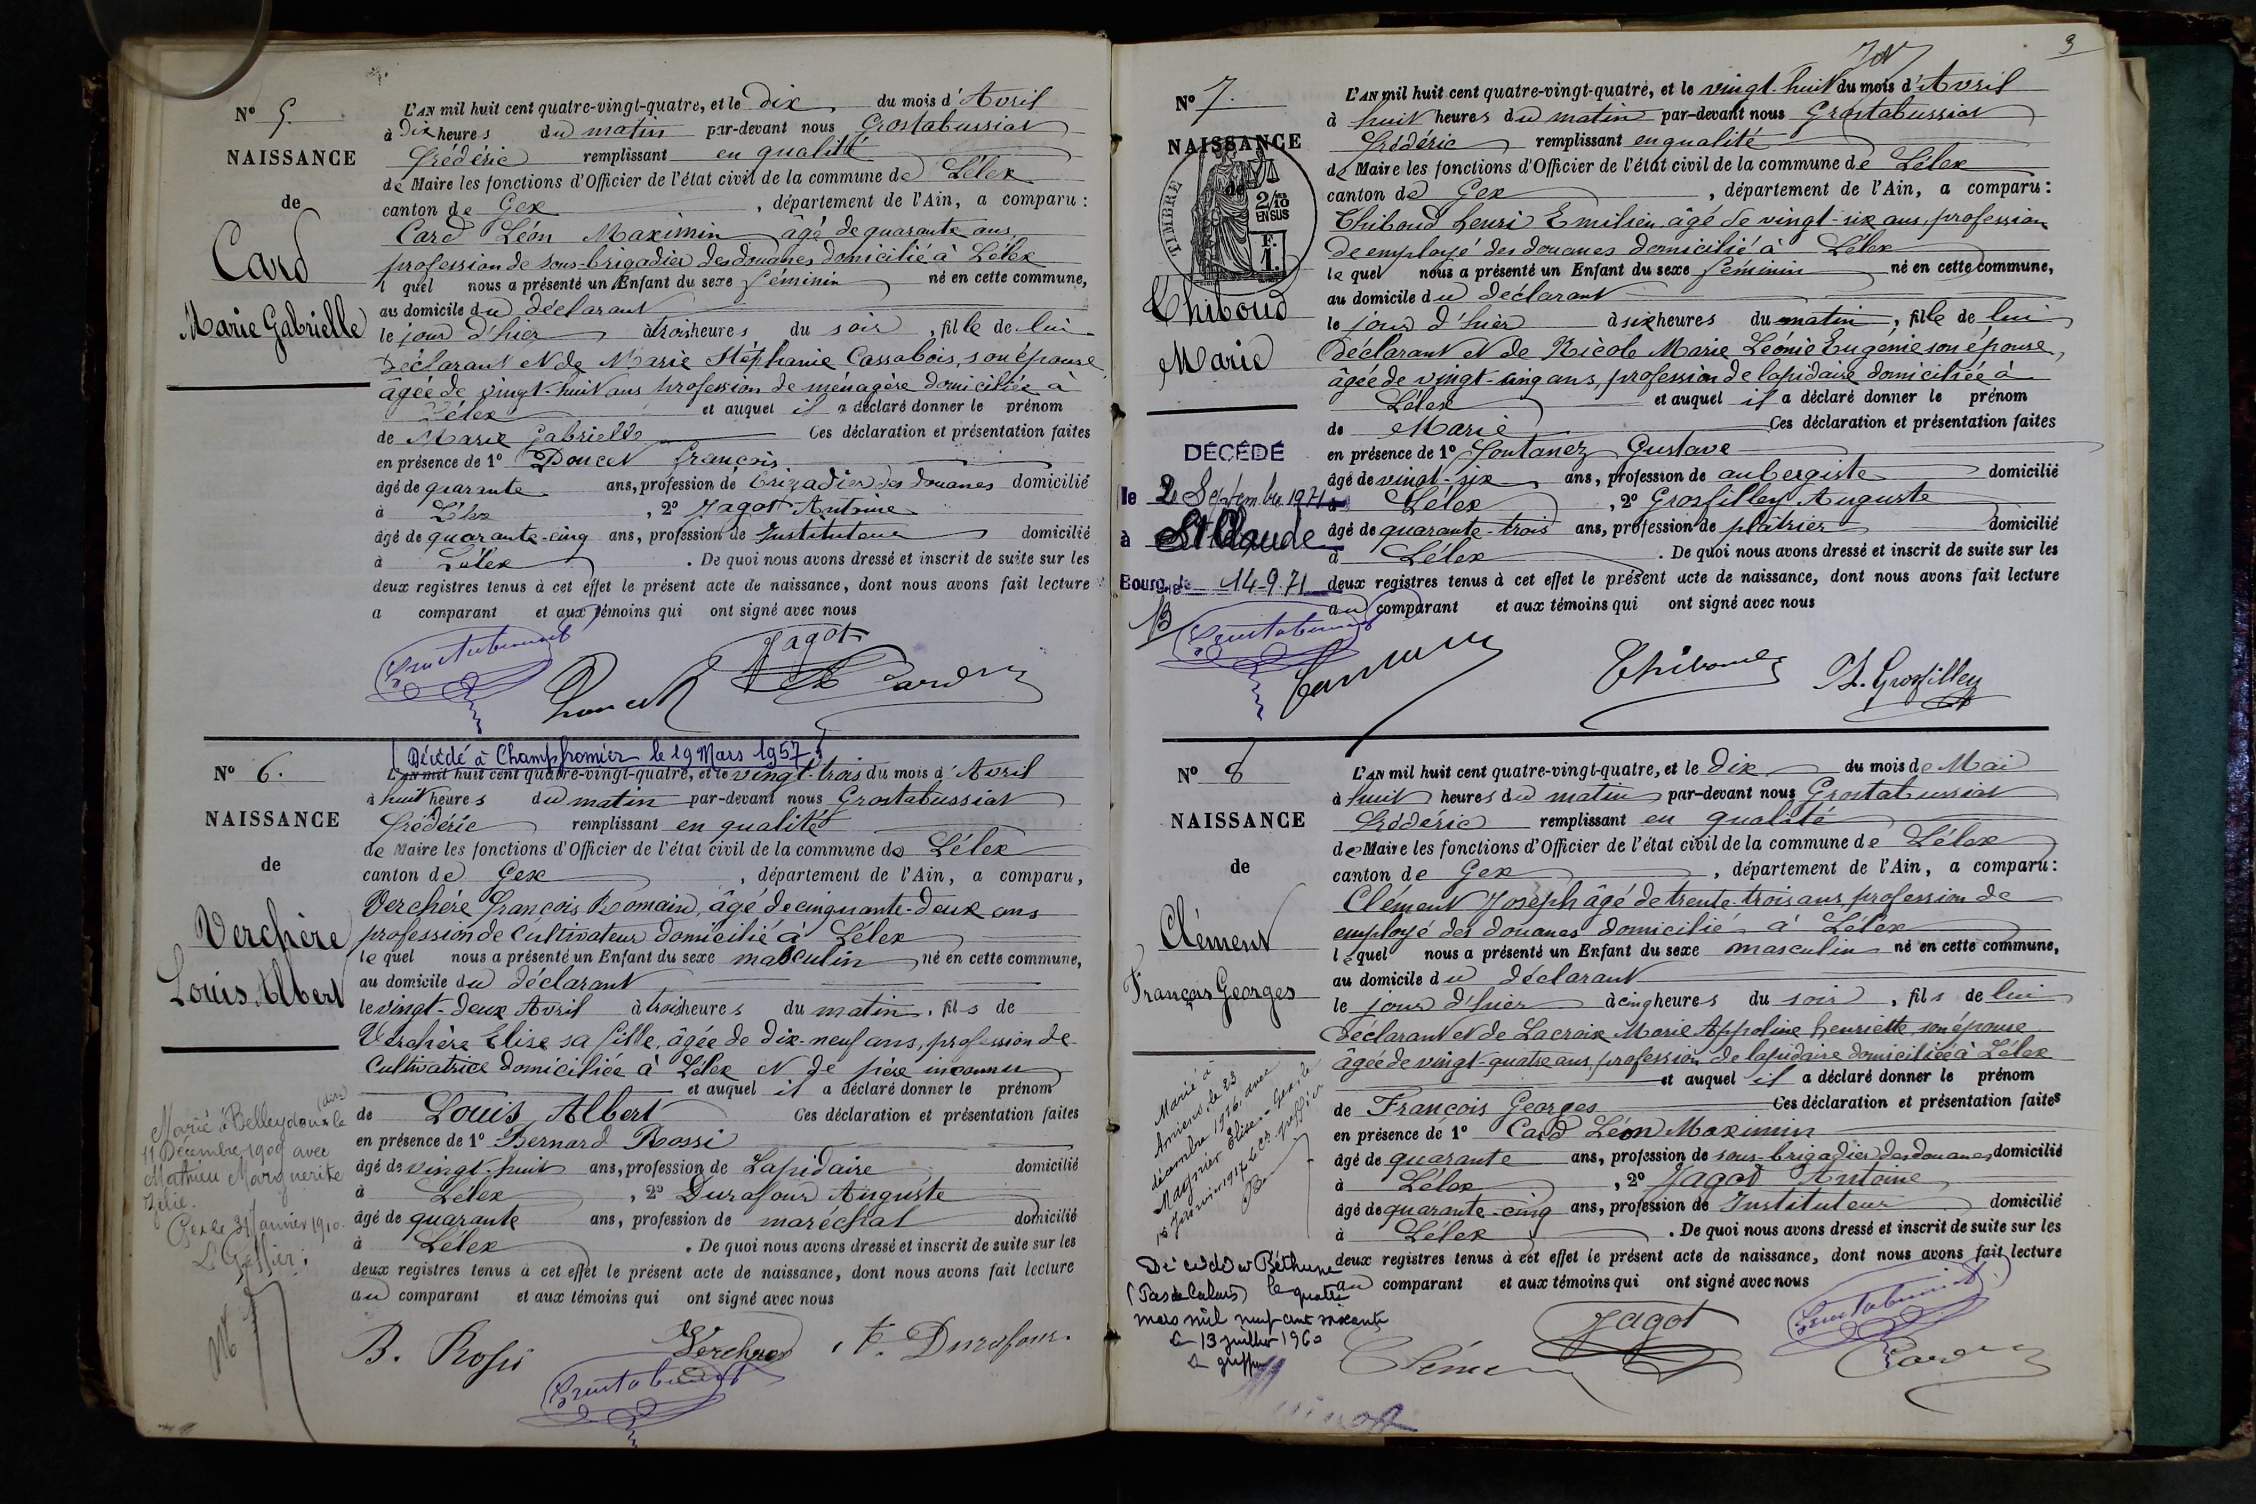 N° 5.
NAISSANCE
de
Card
Marie Gabrielle
L'AN mil huit cent quatre-vingt-quatre, et le dix du mois d'Avril
à dix heures du matin par-devant nous Grostabussiat
Frédéric remplissant en qualité
de Maire les fonctions d'Officier de l'état civil de la commune de Lélex
canton de Gex, département de l'Ain, a comparu :
Card Léon Maximin âgé de quarante ans,
profession de sous-brigadier des douanes domicilié à Lélex
l quel nous a présenté un Enfant du sexe féminin né en cette commune,
au domicile du déclarant
le jour d'hier à trois heures du soir, fille de lui
Déclarant et de Marie Stéphanie Cassabois, son épouse
âgée de vingt-huit ans profession de ménagère domiciliée à
Lélex et auquel il a déclaré donner le prénom
de Marie Gabrielle Ces déclaration et présentation faites
en présence de 1° Doucet François
âgé de quarante ans, profession de brigadier des douanes domicilié
à Lélex, 2° Jagot Antoine
âgé de quarante-cinq ans, profession de Instituteur domicilié
à Lélex. De quoi nous avons dressé et inscrit de suite sur les
deux registres tenus à cet effet le présent acte de naissance, dont nous avons fait lecture
a comparant et aux témoins qui ont signé avec nous
Grostabussiat
Doucet
Jagot
Card
Décédé à Champfromier le 19 Mars 1957
N° 6.
NAISSANCE
de
Verchère
Louis Albert
L'AN mil huit cent quatre-vingt-quatre, et le vingt-trois du mois d'Avril
à huit heures du matin par-devant nous Grostabussiat
Frédéric remplissant en qualité
de Maire les fonctions d'Officier de l'état civil de la commune de Lélex
canton de Gex, département de l'Ain, a comparu,
Verchère François Romain, âgé de cinquante-deux ans
profession de Cultivateur domicilié à Lélex
le quel nous a présenté un Enfant du sexe masculin né en cette commune,
au domicile du déclarant
le vingt-deux Avril à trois heures du matin, fils de
Verchère Elise sa fille, âgée de dix-neuf ans, profession de
Cultivatrice domiciliée à Lélex et de père inconnu
et auquel il a déclaré donner le prénom
de Louis Albert Ces déclaration et présentation faites
en présence de 1° Bernard Rossi
âgé de vingt-huit ans, profession de Lapidaire domicilié
à Lélex, 2° Durafour Auguste
âgé de quarante ans, profession de maréchal domicilié
à Lélex. De quoi nous avons dressé et inscrit de suite sur les
deux registres tenus à cet effet le présent acte de naissance, dont nous avons fait lecture
au comparant et aux témoins qui ont signé avec nous
Marié à Belleydoux (Ain) le
11 Décembre 1909 avec
Mathieu Marguerite
Zélie.
Gex le 31 Janvier 1910.
Le Greffier :
B. Rossi
Verchère
Durafour
Grostabussiat
3
N° 7.
NAISSANCE
de
TIMBRE
2/10
EN SUS
F.
1.
Thiboud
Marie
L'AN mil huit cent quatre-vingt-quatre, et le vingt-huit du mois d'Avril
à huit heures du matin par-devant nous Grostabussiat
Frédéric remplissant en qualité
de Maire les fonctions d'Officier de l'état civil de la commune de Lélex
canton de Gex, département de l'Ain, a comparu :
Thiboud Henri Emilien, âgé de vingt-six ans, profession
de employé des douanes domicilié à Lélex
le quel nous a présenté un Enfant du sexe féminin né en cette commune,
au domicile du déclarant
le jour d'hier à six heures du matin, fille de lui
Déclarant et de Nicole Marie Léonie Eugénie son épouse,
âgée de vingt-cinq ans, profession de lapidaire domiciliée à
Lélex et auquel il a déclaré donner le prénom
de Marie Ces déclaration et présentation faites
en présence de 1° Fontanez Gustave
âgé de vingt-six ans, profession de aubergiste domicilié
à Lélex, 2° Grosfilley Auguste
âgé de quarante-trois ans, profession de plâtrier domicilié
à Lélex. De quoi nous avons dressé et inscrit de suite sur les
deux registres tenus à cet effet le présent acte de naissance, dont nous avons fait lecture
au comparant et aux témoins qui ont signé avec nous
DÉCÉDÉ
le 2 Septembre 1971
à St Claude
Bourg, le 14-9-71
Grostabussiat
Thiboud
Grosfilley
N° 8
NAISSANCE
de
Clément
François Georges
L'AN mil huit cent quatre-vingt-quatre, et le dix du mois de Mai
à huit heures du matin par-devant nous Grostabussiat
Frédéric remplissant en qualité
de Maire les fonctions d'Officier de l'état civil de la commune de Lélex
canton de Gex, département de l'Ain, a comparu :
Clément Joseph âgé de trente-trois ans, profession de
employé des douanes domicilié à Lélex
le quel nous a présenté un Enfant du sexe masculin né en cette commune,
au domicile du déclarant
le jour d'hier à cinq heures du soir, fils de lui
Déclarant et de Lacroix Marie Appoline Henriette, son épouse
âgée de vingt-quatre ans, profession de lapidaire domiciliée à Lélex
et auquel il a déclaré donner le prénom
de François Georges Ces déclaration et présentation faites
en présence de 1° Card Léon Maximin
âgé de quarante ans, profession de sous-brigadier des douanes domicilié
à Lélex, 2° Jagot Antoine
âgé de quarante-cinq ans, profession de Instituteur domicilié
à Lélex. De quoi nous avons dressé et inscrit de suite sur les
deux registres tenus à cet effet le présent acte de naissance, dont nous avons fait lecture
au comparant et aux témoins qui ont signé avec nous
Marié à
Amiens, le 23
décembre 1916, avec
Magnier Elise
Janvier 1917 Le Greffier
Décédé à Béthune
(Pas de Calais) le quatre
mars mil neuf cent soixante
le 13 juillet 1960
Le greffier
Clément
Jagot
Grostabussiat
Card